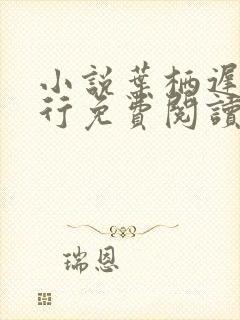 小說葉柄遲
行免費閱讀
瑞恩